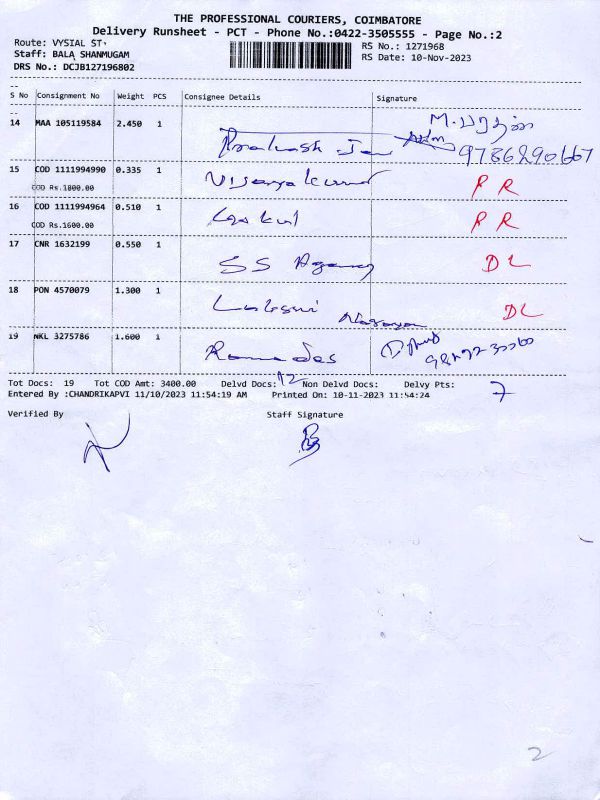 THE PROFESSIONAL COURIERS, COIMBATORE
Delivery Runsheet - PCT - Phone No.:0422-3505555 - Page No.:2
Route: VYSIAL ST. RS No.: 1271968
Staff: BALA SHANMUGAM RS Date: 10-Nov-2023
DRS No.: DCJB127196802
S No Consignment No Weight PCS Consignee Details Signature
14 MAA 105119584 2.450 1 Prakash Jain
9786290667
15 COD 1111994990 0.335 1 Vijayakumar RR
COD Rs.1800.00
16 COD 1111994964 0.510 1 Gokul RR
COD Rs.1600.00
17 CNR 1632199 0.550 1 SS Agency DL
18 PON 4570079 1.300 1 Laksmi Narayan DL
19 NKL 3275786 1.600 1 Ramadas
Tot Docs: 19 Tot COD Amt: 3400.00 Delvd Docs: 12 Non Delvd Docs: Delvy Pts: 7
Entered By :CHANDRIKAPVI 11/10/2023 11:54:19 AM Printed On: 10-11-2023 11:54:24
Verified By Staff Signature
2